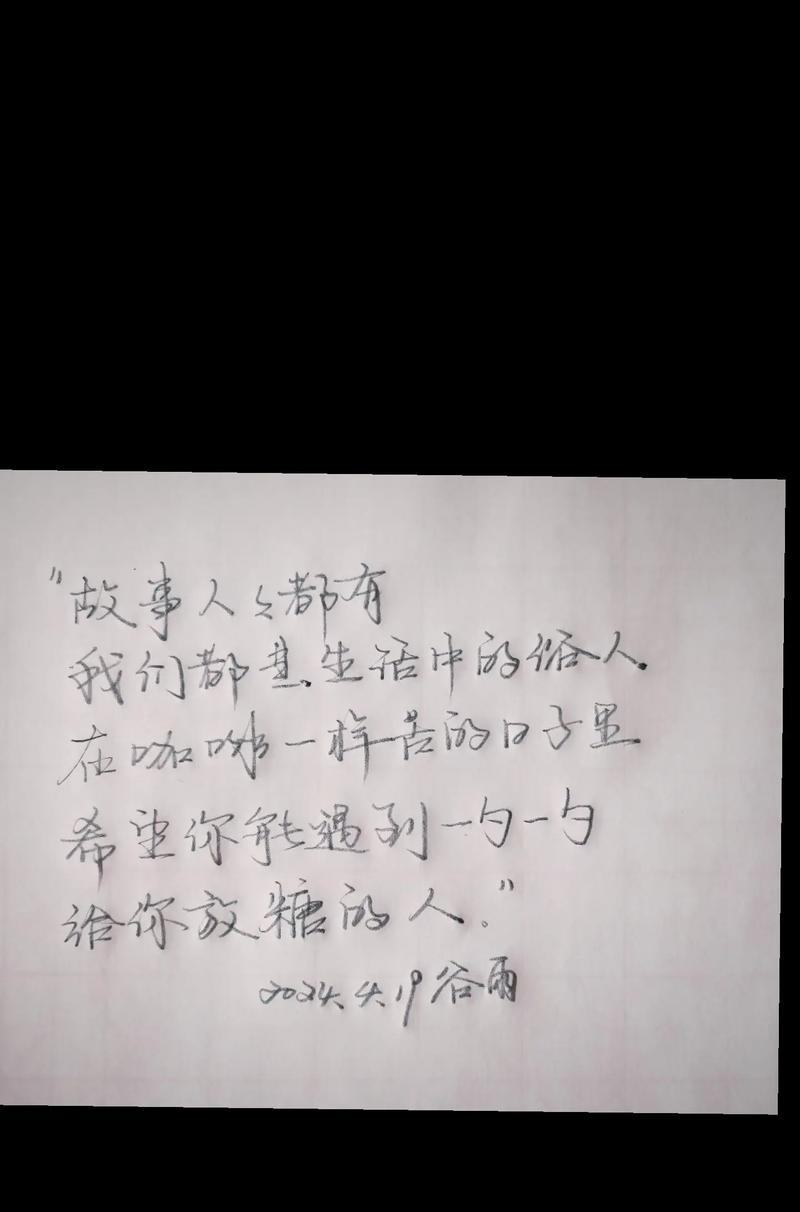 "故事人々都有
我们都是生活中的俗人.
在咖啡一样苦的日子里
希望你能遇到一勺一勺
给你放糖的人."
2024.4.19谷雨